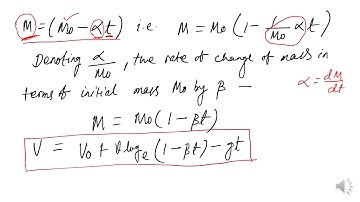 M = (Mo - αt) i.e. M = Mo (1 - 1/Mo αt)
Denoting α/Mo, the rate of change of mass in
α = dM/dt
terms of initial mass Mo by β —
M = Mo (1 - βt)
V = Vo + θ loge (1 - βt) - gt